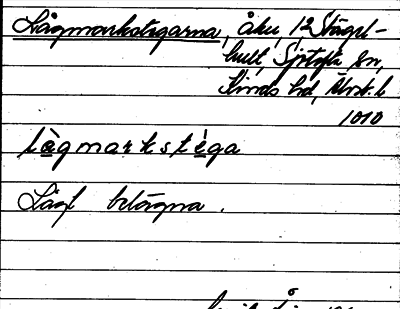 Lågmarkstegarna, åker, 12 Stägel-
hult, Sjötofta sn,
Kinds hd, Älvsb. l
1010
lågmarkstéga
Lågt belägna.